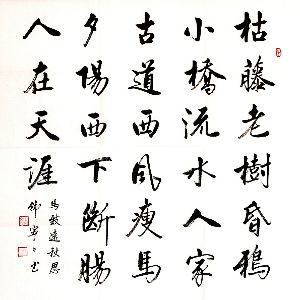 枯藤老樹昏鴉
小橋流水人家
古道西風瘦馬
夕陽西下斷腸
人在天涯
馬致遠秋思